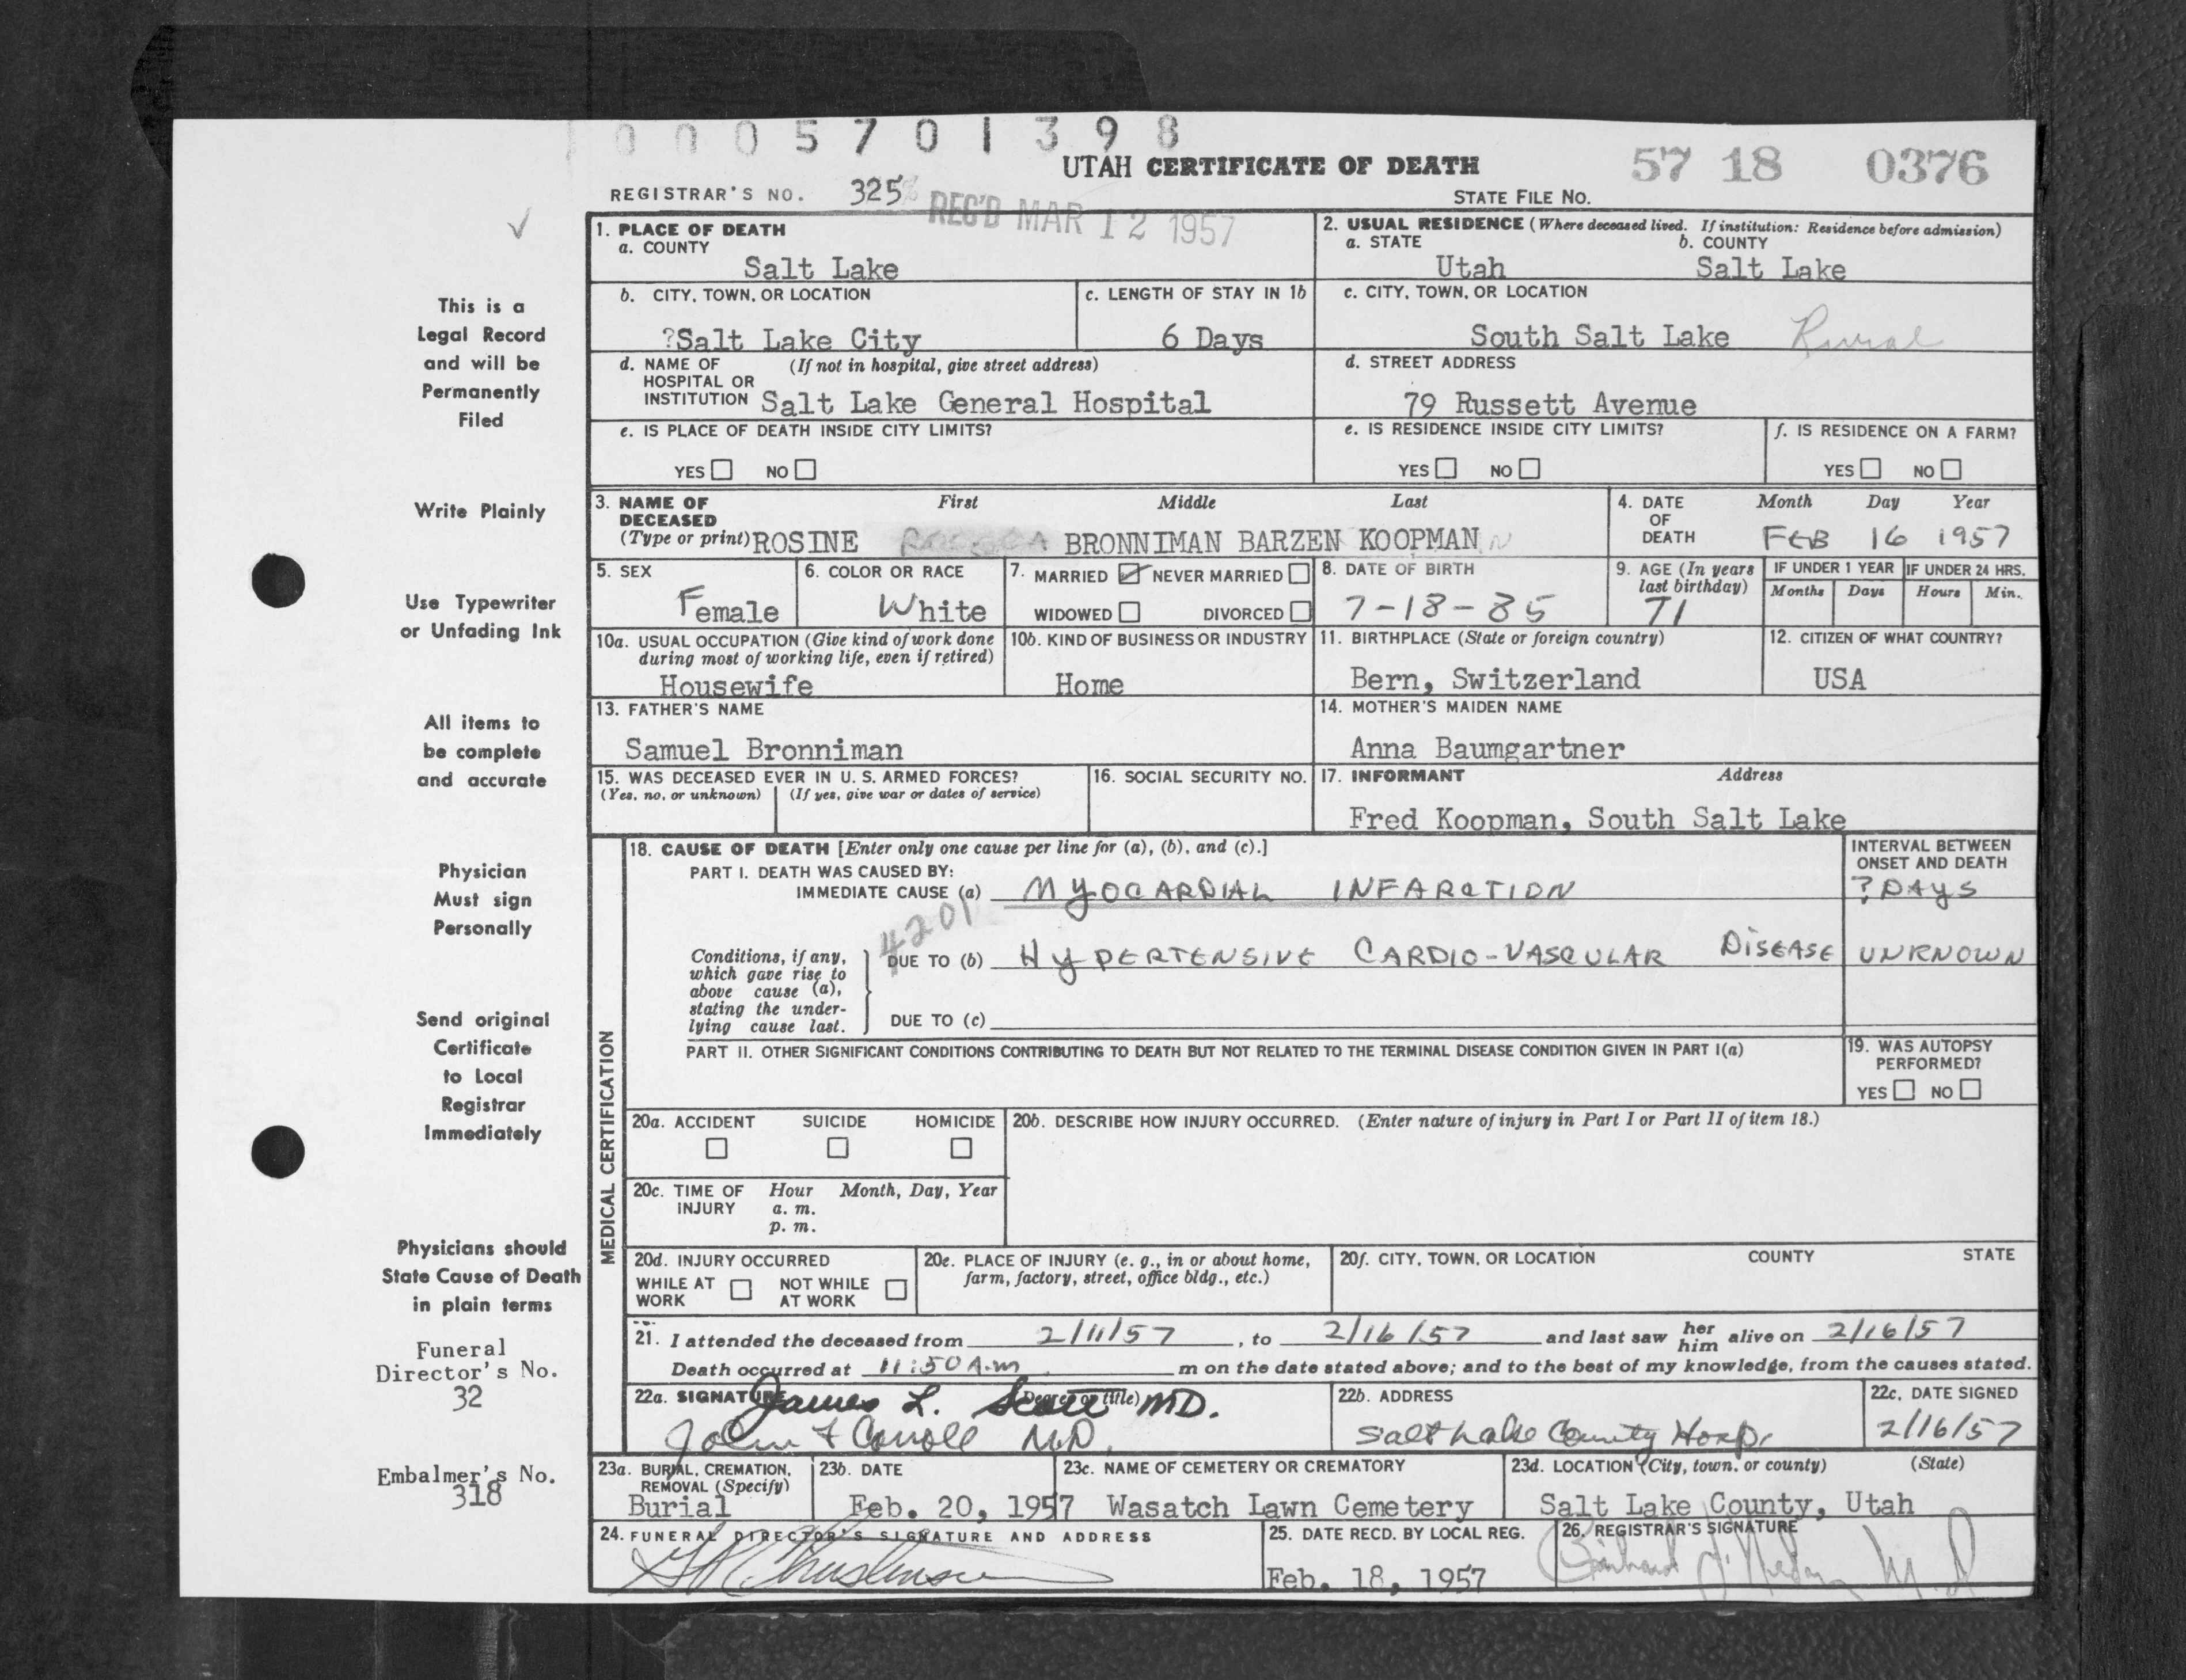 0005701398
UTAH CERTIFICATE OF DEATH
57 18 0376
REGISTRAR'S NO. 325
STATE FILE NO.
REC'D MAR 12 1957
1. PLACE OF DEATH
a. COUNTY
Salt Lake
2. USUAL RESIDENCE (Where deceased lived. If institution: Residence before admission)
a. STATE b. COUNTY
Utah Salt Lake
b. CITY, TOWN, OR LOCATION
?Salt Lake City
c. LENGTH OF STAY IN 1b
6 Days
c. CITY, TOWN, OR LOCATION
South Salt Lake Rural
d. NAME OF HOSPITAL OR INSTITUTION (If not in hospital, give street address)
Salt Lake General Hospital
d. STREET ADDRESS
79 Russett Avenue
e. IS PLACE OF DEATH INSIDE CITY LIMITS?
YES NO
e. IS RESIDENCE INSIDE CITY LIMITS?
YES NO
f. IS RESIDENCE ON A FARM?
YES NO
3. NAME OF DECEASED (Type or print)
First Middle Last
ROSINE BRONNIMAN BARZEN KOOPMAN
4. DATE OF DEATH
Month Day Year
FEB 16 1957
5. SEX
Female
6. COLOR OR RACE
White
7. MARRIED NEVER MARRIED
WIDOWED DIVORCED
8. DATE OF BIRTH
7-18-85
9. AGE (In years last birthday)
71
IF UNDER 1 YEAR
Months Days
IF UNDER 24 HRS.
Hours Min.
10a. USUAL OCCUPATION (Give kind of work done during most of working life, even if retired)
Housewife
10b. KIND OF BUSINESS OR INDUSTRY
Home
11. BIRTHPLACE (State or foreign country)
Bern, Switzerland
12. CITIZEN OF WHAT COUNTRY?
USA
13. FATHER'S NAME
Samuel Bronniman
14. MOTHER'S MAIDEN NAME
Anna Baumgartner
15. WAS DECEASED EVER IN U. S. ARMED FORCES?
(Yes, no, or unknown) (If yes, give war or dates of service)
16. SOCIAL SECURITY NO.
17. INFORMANT Address
Fred Koopman, South Salt Lake
MEDICAL CERTIFICATION
18. CAUSE OF DEATH [Enter only one cause per line for (a), (b), and (c).]
INTERVAL BETWEEN ONSET AND DEATH
PART I. DEATH WAS CAUSED BY:
IMMEDIATE CAUSE (a) MYOCARDIAL INFARCTION
? DAYS
4201
Conditions, if any, which gave rise to above cause (a), stating the underlying cause last.
DUE TO (b) HYPERTENSIVE CARDIO-VASCULAR DISEASE
UNKNOWN
DUE TO (c)
PART II. OTHER SIGNIFICANT CONDITIONS CONTRIBUTING TO DEATH BUT NOT RELATED TO THE TERMINAL DISEASE CONDITION GIVEN IN PART I(a)
19. WAS AUTOPSY PERFORMED?
YES NO
20a. ACCIDENT SUICIDE HOMICIDE
20b. DESCRIBE HOW INJURY OCCURRED. (Enter nature of injury in Part I or Part II of item 18.)
20c. TIME OF INJURY
Hour Month, Day, Year
a. m.
p. m.
20d. INJURY OCCURRED
WHILE AT WORK NOT WHILE AT WORK
20e. PLACE OF INJURY (e. g., in or about home, farm, factory, street, office bldg., etc.)
20f. CITY, TOWN, OR LOCATION COUNTY STATE
21. I attended the deceased from 2/11/57, to 2/16/57 and last saw her him alive on 2/16/57
Death occurred at 11:50 A.m m on the date stated above; and to the best of my knowledge, from the causes stated.
22a. SIGNATURE (Degree or title)
James L. Scott MD.
John F Carroll M.D.
22b. ADDRESS
Salt Lake County Hosp.
22c. DATE SIGNED
2/16/57
23a. BURIAL, CREMATION, REMOVAL (Specify)
Burial
23b. DATE
Feb. 20, 1957
23c. NAME OF CEMETERY OR CREMATORY
Wasatch Lawn Cemetery
23d. LOCATION (City, town, or county) (State)
Salt Lake County, Utah
24. FUNERAL DIRECTOR'S SIGNATURE AND ADDRESS
25. DATE RECD. BY LOCAL REG.
Feb. 18, 1957
26. REGISTRAR'S SIGNATURE
This is a
Legal Record
and will be
Permanently
Filed
Write Plainly
Use Typewriter
or Unfading Ink
All items to
be complete
and accurate
Physician
Must sign
Personally
Send original
Certificate
to Local
Registrar
Immediately
Physicians should
State Cause of Death
in plain terms
Funeral
Director's No.
32
Embalmer's No.
318